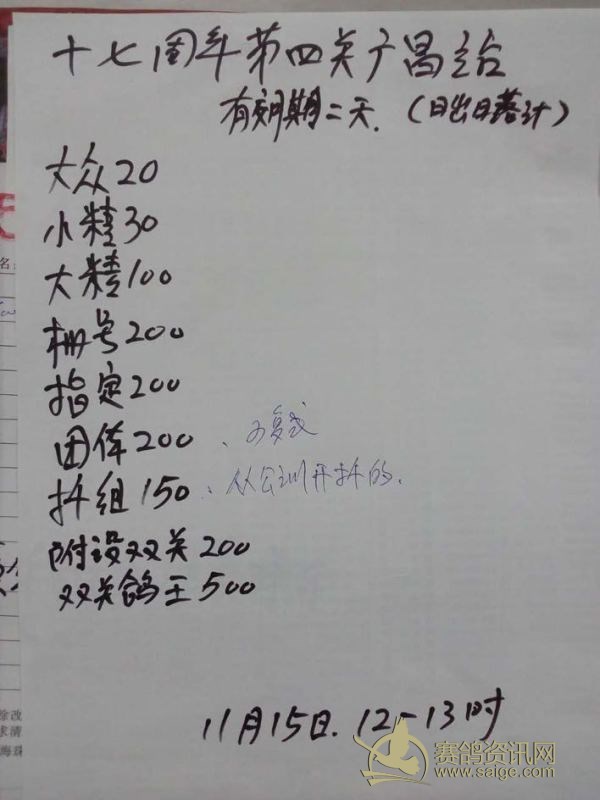 十七周年第四关广昌站
有效期二天.(日出日落计)
大众20
小精30
大精100
栅号200
指定200
团体200、可复式
抖组150、从公训开抖的.
附设双关200
双关鸽王500
11月15日.12-13时
名:
除改
求清
海珠
赛鸽资讯网
www.saige.com